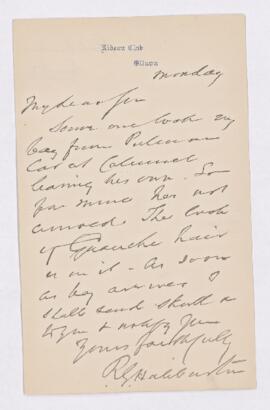 Rideau Club
Ottawa
Monday
My dear Sir
Some one took my
bag from Pulman
Car at Calumet
leaving his own. So
far mine has not
arrived. The lock
of Guanche hair
is in it - As soon
as bag arrives I
shall send
to you & notify you
Yours faithfully
R G Haliburton